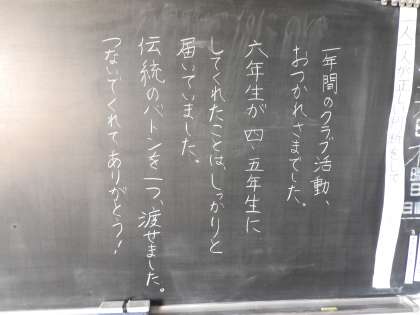 一年間のクラブ活動、
おつかれさまでした。
六年生が四、五年生に
してくれたことは、しっかりと
届いていました。
伝統のバトンを一つ、渡せました。
つないでくれてありがとう!